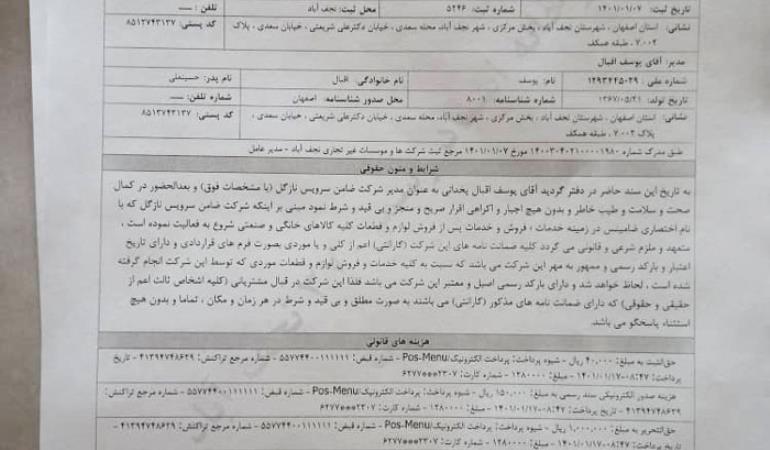 تاریخ ثبت: ۱۴۰۱/۰۱/۰۷ شماره ثبت: ۵۲۴۶ محل ثبت: نجف آباد تلفن: ــــ
نشانی: استان اصفهان، شهرستان نجف آباد، بخش مرکزی، شهر نجف آباد، محله سعدی، خیابان دکترعلی شریعتی، خیابان سعدی، پلاک ۷.۰۰۲، طبقه همکف کد پستی: ۸۵۱۳۷۴۳۱۳۷
مدیر: آقای یوسف اقبال
شماره ملی: ۱۲۹۳۴۴۵۰۲۹ نام: یوسف نام خانوادگی: اقبال نام پدر: حسینعلی
تاریخ تولد: ۱۳۶۷/۰۵/۲۱ شماره شناسنامه: ۸۰۰۱ محل صدور شناسنامه: اصفهان شماره تلفن: ــــ
نشانی: استان اصفهان، شهرستان نجف آباد، بخش مرکزی، شهر نجف آباد، محله سعدی، خیابان دکترعلی شریعتی، خیابان سعدی، پلاک ۷.۰۰۲، طبقه همکف کد پستی: ۸۵۱۳۷۴۳۱۳۷
طبق مدرک شماره ۱۴۰۰۳۰۴۰۲۱۰۰۰۰۱۹۸۰ مورخ ۱۴۰۱/۰۱/۰۷ مرجع ثبت شرکت ها و موسسات غیر تجاری نجف آباد - مدیر عامل
شرایط و متون حقوقی
به تاریخ این سند حاضر در دفتر گردید آقای یوسف اقبال یحدانی به عنوان مدیر شرکت ضامن سرویس نازگل (با مشخصات فوق) و بعدالحضور در کمال
صحت و سلامت و طیب خاطر و بدون هیچ اجبار و اکراهی اقرار صریح و منجز و بی قید و شرط نمود مبنی بر اینکه شرکت ضامن سرویس نازگل که با
نام اختصاری ضامینس در زمینه خدمات، فروش و خدمات پس از فروش لوازم و قطعات کلیه کالاهای خانگی و صنعتی شروع به فعالیت نموده است،
متعهد و ملزم شرعی و قانونی می گردد کلیه ضمانت نامه های این شرکت (گارانتی) اعم از کلی و یا موردی بصورت فرم های قراردادی و دارای تاریخ
اعتبار و بارکد رسمی و ممهور به مهر این شرکت می باشد که نسبت به کلیه خدمات و فروش لوازم و قطعات موردی که توسط این شرکت انجام گرفته
شده است، لحاظ خواهد شد و دارای بارکد رسمی اصیل و معتبر این شرکت می باشد فلذا این شرکت در قبال مشتریانی (کلیه اشخاص ثالث اعم از
حقیقی و حقوقی) که دارای ضمانت نامه های مذکور (گارانتی) می باشند به صورت مطلق و بی قید و شرط در هر زمان و مکان، تماما و بدون هیچ
استثناء پاسخگو می باشد.
هزینه های قانونی
حق الثبت به مبلغ: ۴۰,۰۰۰ ریال - شیوه پرداخت: پرداخت الکترونیک/Pos-Menu - شماره قبض: ۵۵۷۷۴۴۰۰۱۱۱۱۱۱ - شماره مرجع تراکنش: ۴۱۳۹۴۷۴۸۶۳۹ - تاریخ
پرداخت: ۱۴۰۱/۰۱/۱۷-۰۸:۴۷ - ۱۲۸۰۰۰۰ - شماره کارت: ۶۲۷۷***۲۳۰۷
هزینه صدور الکترونیکی سند رسمی به مبلغ: ۱۵۰,۰۰۰ ریال - شیوه پرداخت: پرداخت الکترونیک/Pos-Menu - شماره قبض: ۵۵۷۷۴۴۰۰۱۱۱۱۱۱ - شماره مرجع تراکنش:
۴۱۳۹۴۷۴۸۶۳۹ - تاریخ پرداخت: ۱۴۰۱/۰۱/۱۷-۰۸:۴۷ - ۱۲۸۰۰۰۰ - شماره کارت: ۶۲۷۷***۲۳۰۷
حق التحریر به مبلغ: ۱,۰۰۰,۰۰۰ ریال - شیوه پرداخت: پرداخت الکترونیک/Pos-Menu - شماره قبض: ۵۵۷۷۴۴۰۰۱۱۱۱۱۱ - شماره مرجع تراکنش: ۴۱۳۹۴۷۴۸۶۳۹ -
تاریخ پرداخت: ۱۴۰۱/۰۱/۱۷-۰۸:۴۷ - ۱۲۸۰۰۰۰ - شماره کارت: ۶۲۷۷***۲۳۰۷